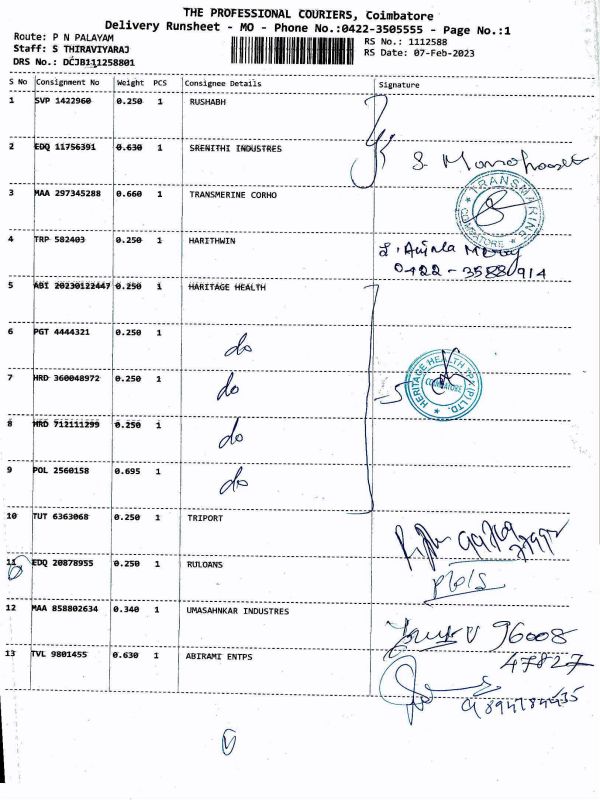 THE PROFESSIONAL COURIERS, Coimbatore
Delivery Runsheet - MO - Phone No.:0422-3505555 - Page No.:1
Route: P N PALAYAM
RS No.: 1112588
Staff: S THIRAVIYARAJ
RS Date: 07-Feb-2023
DRS No.: DCJB111258801
S No Consignment No Weight PCS Consignee Details Signature
1 SVP 1422960 0.250 1 RUSHABH
2 EDQ 11756391 0.630 1 SRENITHI INDUSTRES
3 MAA 297345288 0.660 1 TRANSMERINE CORHO
TRANSMARINE
COIMBATORE
4 TRP 582403 0.250 1 HARITHWIN
0422-35880914
5 ABI 20230122447 0.250 1 HARITAGE HEALTH
6 PGT 4444321 0.250 1 do
7 HRD 360048972 0.250 1 do
HERITAGE HEALTH TPA (P) LTD.
COIMBATORE
8 HRD 712111299 0.250 1 do
9 POL 2560158 0.695 1 do
10 TUT 6363068 0.250 1 TRIPORT
11 EDQ 20878955 0.250 1 RULOANS
12 MAA 858802634 0.340 1 UMASAHNKAR INDUSTRES
96008
47827
13 TVL 9801455 0.630 1 ABIRAMI ENTPS